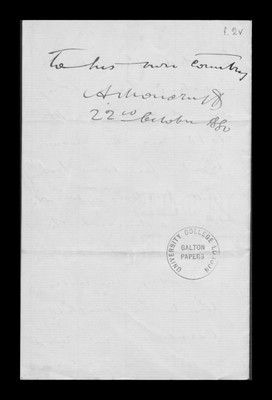 f. 2v
To his own country
22nd October 1880
UNIVERSITY COLLEGE LONDON
GALTON
PAPERS